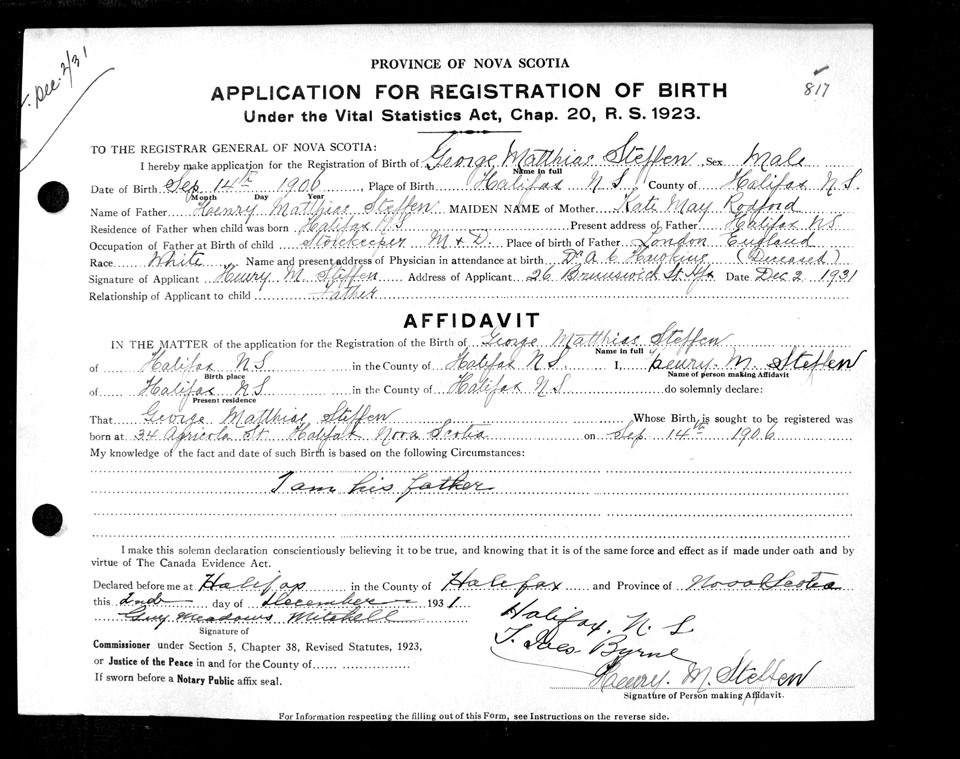 Dec. 2/31
817
PROVINCE OF NOVA SCOTIA
APPLICATION FOR REGISTRATION OF BIRTH
Under the Vital Statistics Act, Chap. 20, R. S. 1923.
TO THE REGISTRAR GENERAL OF NOVA SCOTIA:
I hereby make application for the Registration of Birth of George Matthias Steffen Sex Male
Name in full
Date of Birth Sep 14th 1906, Place of Birth Halifax N S, County of Halifax N.S.
Month Day Year
Name of Father Henry Matthias Steffen MAIDEN NAME of Mother Kate May Rodford
Residence of Father when child was born Halifax N S Present address of Father Halifax NS
Occupation of Father at Birth of child Storekeeper M & D. Place of birth of Father London England
Race White Name and present address of Physician in attendance at birth Dr A. C. (Deceased)
Signature of Applicant Henry M. Steffen Address of Applicant 26 Brunswick St Hfx Date Dec 2 1931
Relationship of Applicant to child Father
AFFIDAVIT
IN THE MATTER of the application for the Registration of the Birth of George Matthias Steffen
Name in full
of Halifax N S in the County of Halifax N S. I, Henry M. Steffen
Birth place Name of person making Affidavit
of Halifax N S in the County of Halifax N S do solemnly declare:
Present residence
That George Matthias Steffen Whose Birth is sought to be registered was
born at 34 Agricola St. Halifax Nova Scotia on Sep 14th 1906
My knowledge of the fact and date of such Birth is based on the following Circumstances:
I am his father
I make this solemn declaration conscientiously believing it to be true, and knowing that it is of the same force and effect as if made under oath and by
virtue of The Canada Evidence Act.
Declared before me at Halifax in the County of Halifax and Province of Nova Scotia
this 2nd day of December 1931.
Guy Meadows Mitchell
Halifax, N. S
Signature of
Byrne
Commissioner under Section 5, Chapter 38, Revised Statutes, 1923,
or Justice of the Peace in and for the County of
Henry M. Steffen
If sworn before a Notary Public affix seal.
Signature of Person making Affidavit.
For Information respecting the filling out of this Form, see Instructions on the reverse side.